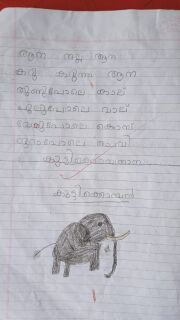 ആന നല്ല ആന
കറു കറുന്നു ആന
തൂണുപോലെ കാല്
ചൂലുപോലെ വാല്
കൊമ്പ്
മുറംപോലെ ചെവി
കുട്ടിക്കൊമ്പൻ